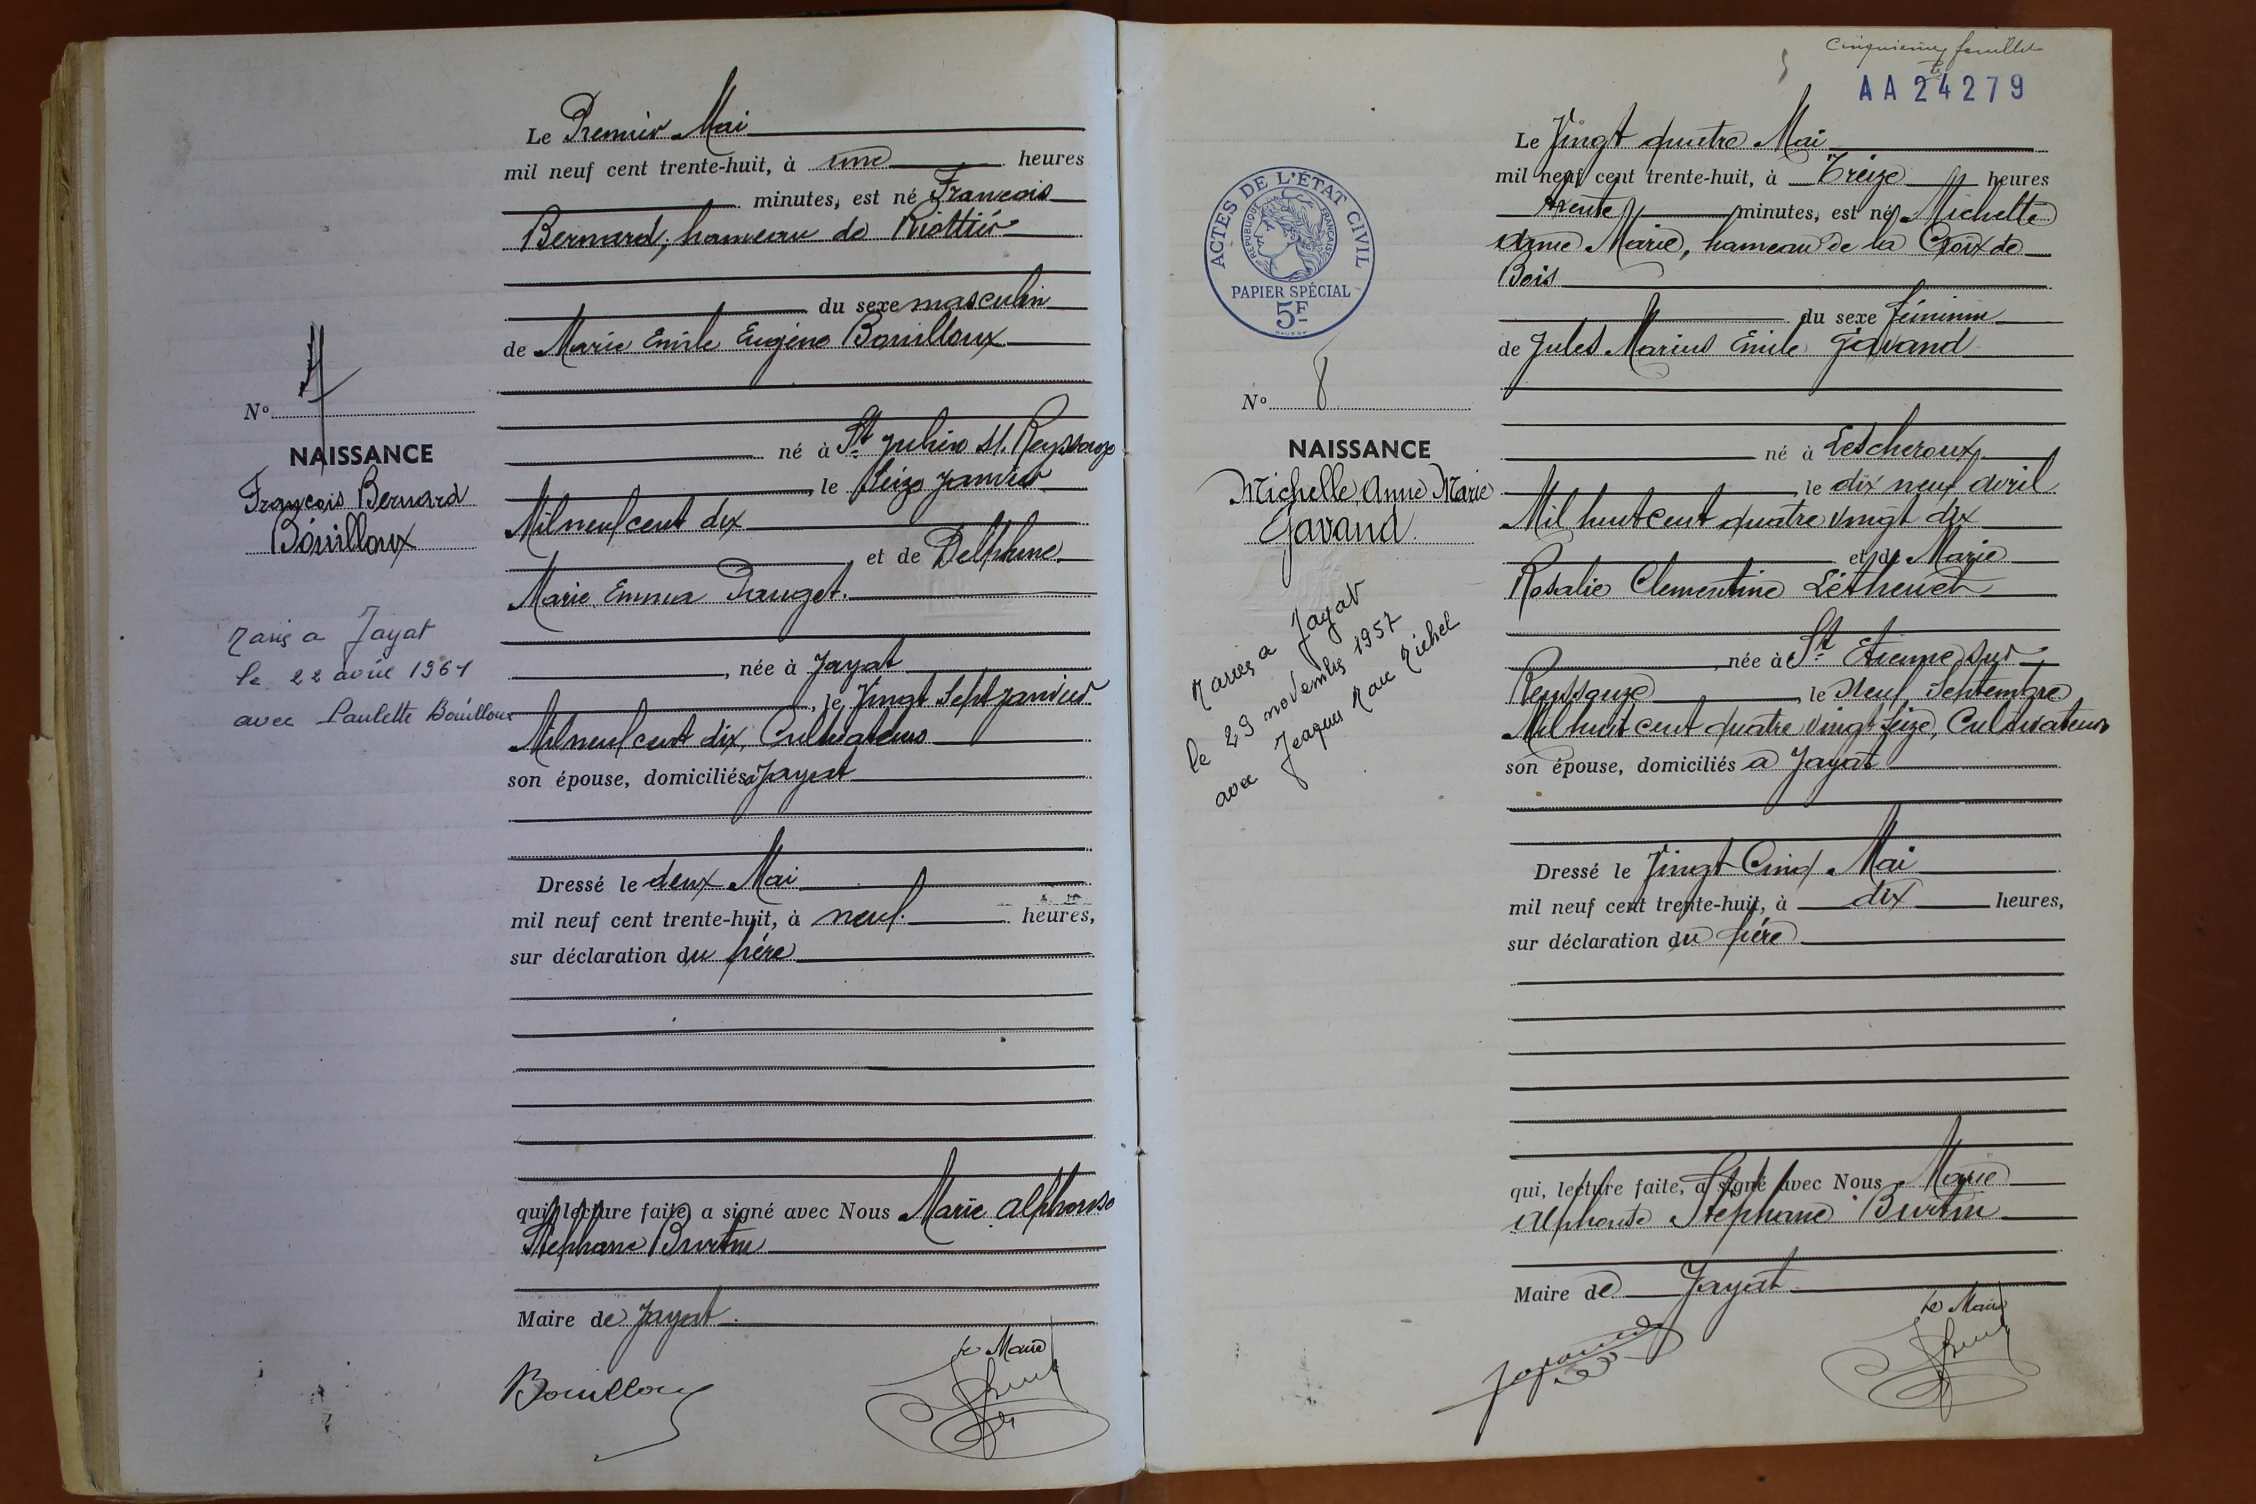 Le Premier Mai
mil neuf cent trente-huit, à une heures
minutes, est né François
Bernard, hameau de Riottier
du sexe masculin
de Marie Emile Eugène Bouilloux
né à St Julien s/. Reyssouze
, le Seize Janvier
Mil neuf cent dix
et de Delphine
Marie Emma Pauget.
, née à Jayat
, le Vingt Sept Janvier
Mil neuf cent dix, Cultivateurs
son épouse, domiciliés à Jayat
Dressé le deux Mai
mil neuf cent trente-huit, à neuf. heures,
sur déclaration du père
qui, lecture faite, a signé avec Nous Marie Alphonse
Stéphane Burtin
Maire de Jayat.
Le Maire
Bouilloux
No 7
NAISSANCE
François Bernard
Bouilloux
Marié a Jayat
le 22 avril 1961
avec Paulette Bouilloux
Cinquième feuillet
AA 24279
Le Vingt quatre Mai
mil neuf cent trente-huit, à Treize heures
trente minutes, est né Michelle
Anne Marie, hameau de la Croix de
Bois
du sexe féminin
de Jules Marius Emile Gavand
né à Lescheroux
le dix neuf avril
Mil huit cent quatre vingt dix
et de Marie
Rosalie Clementine
, née à St Etienne sur
Reyssouze le Neuf Septembre
Mil huit cent quatre vingt seize, Cultivateurs
son épouse, domiciliés à Jayat
Dressé le Vingt Cinq Mai
mil neuf cent trente-huit, à dix heures,
sur déclaration du père
qui, lecture faite, a signé avec Nous Marie
Alphonse Stéphane Burtin
Maire de Jayat
Le Maire
ACTES DE L'ÉTAT CIVIL
RÉPUBLIQUE FRANÇAISE
PAPIER SPÉCIAL
5F
No 8
NAISSANCE
Michelle Anne Marie
Gavand
Mariée a Jayat
le 29 novembre 1957
avec Jeaques Marc Michel